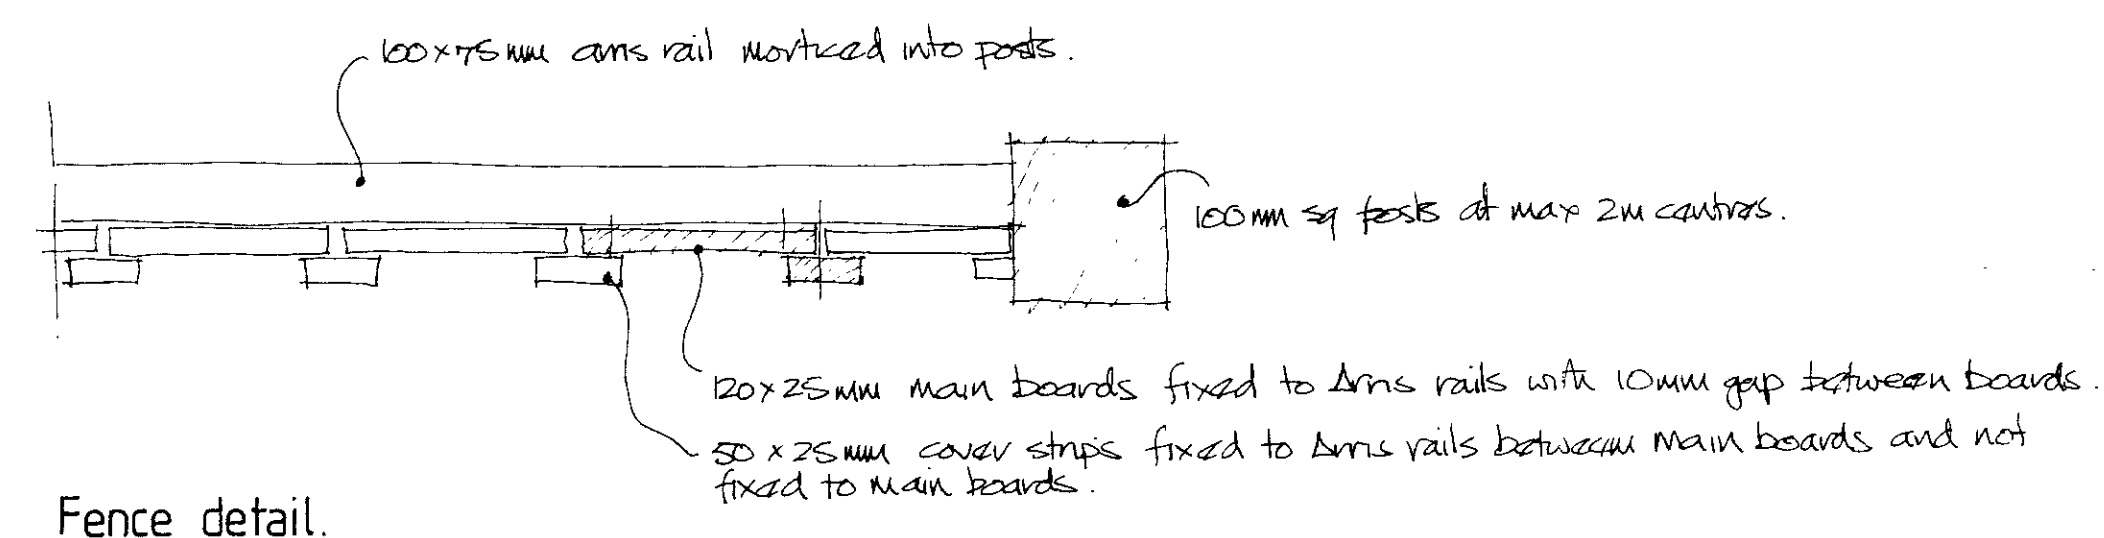 100x75mm arris rail morticed into posts.
100mm sq posts at max 2m centres.
120x25mm main boards fixed to Arris rails with 10mm gap between boards.
50x25mm cover strips fixed to Arris rails between main boards and not
fixed to main boards.
Fence detail.